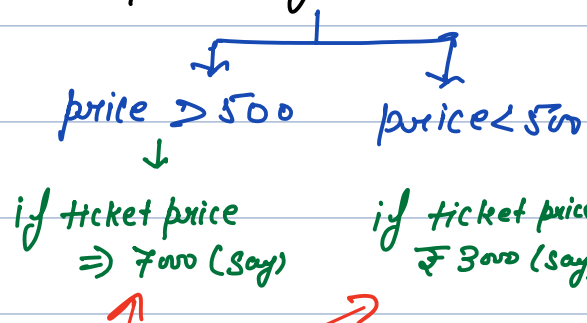 price > 500
price < 500
if ticket price
⇒ 7000 (say)
if ticket price
₹ 3000 (say